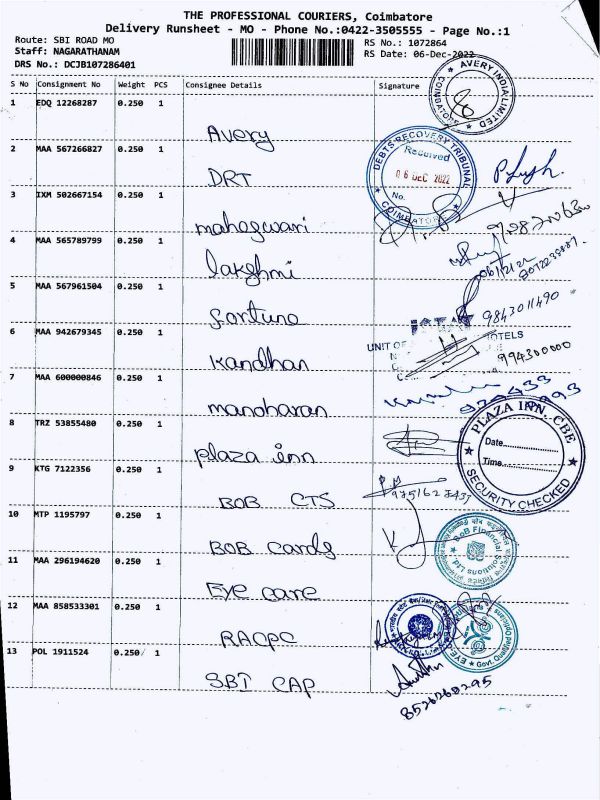 THE PROFESSIONAL COURIERS, Coimbatore
Delivery Runsheet - MO - Phone No.:0422-3505555 - Page No.:1
Route: SBI ROAD MO
RS No.: 1072864
Staff: NAGARATHANAM
RS Date: 06-Dec-2022
DRS No.: DCJB107286401
S No Consignment No Weight PCS Consignee Details Signature
1 EDQ 12268287 0.250 1
Avery
AVERY INDIA LIMITED
COIMBATORE
2 MAA 567266827 0.250 1
DRT
DEBTS RECOVERY TRIBUNAL
Received
06 DEC 2022
No.
COIMBATORE
3 IXM 502667154 0.250 1
maheswari
4 MAA 565789799 0.250 1
lakshmi
5 MAA 567961504 0.250 1
fortune
9843011490
6 MAA 942679345 0.250 1
kandhan
UNIT OF
HOTELS
994300000
7 MAA 600000846 0.250 1
manoharan
8 TRZ 53855480 0.250 1
plaza inn
PLAZA INN. CBE
Date
Time
SECURITY CHECKED
9 KTG 7122356 0.250 1
BOB CTS
10 MTP 1195797 0.250 1
BOB cards
BoB Financial Solutions Ltd
11 MAA 296194620 0.250 1
Eye care
12 MAA 858533301 0.250 1
RACPC
13 POL 1911524 0.250 1
SBI CAP
8526268295